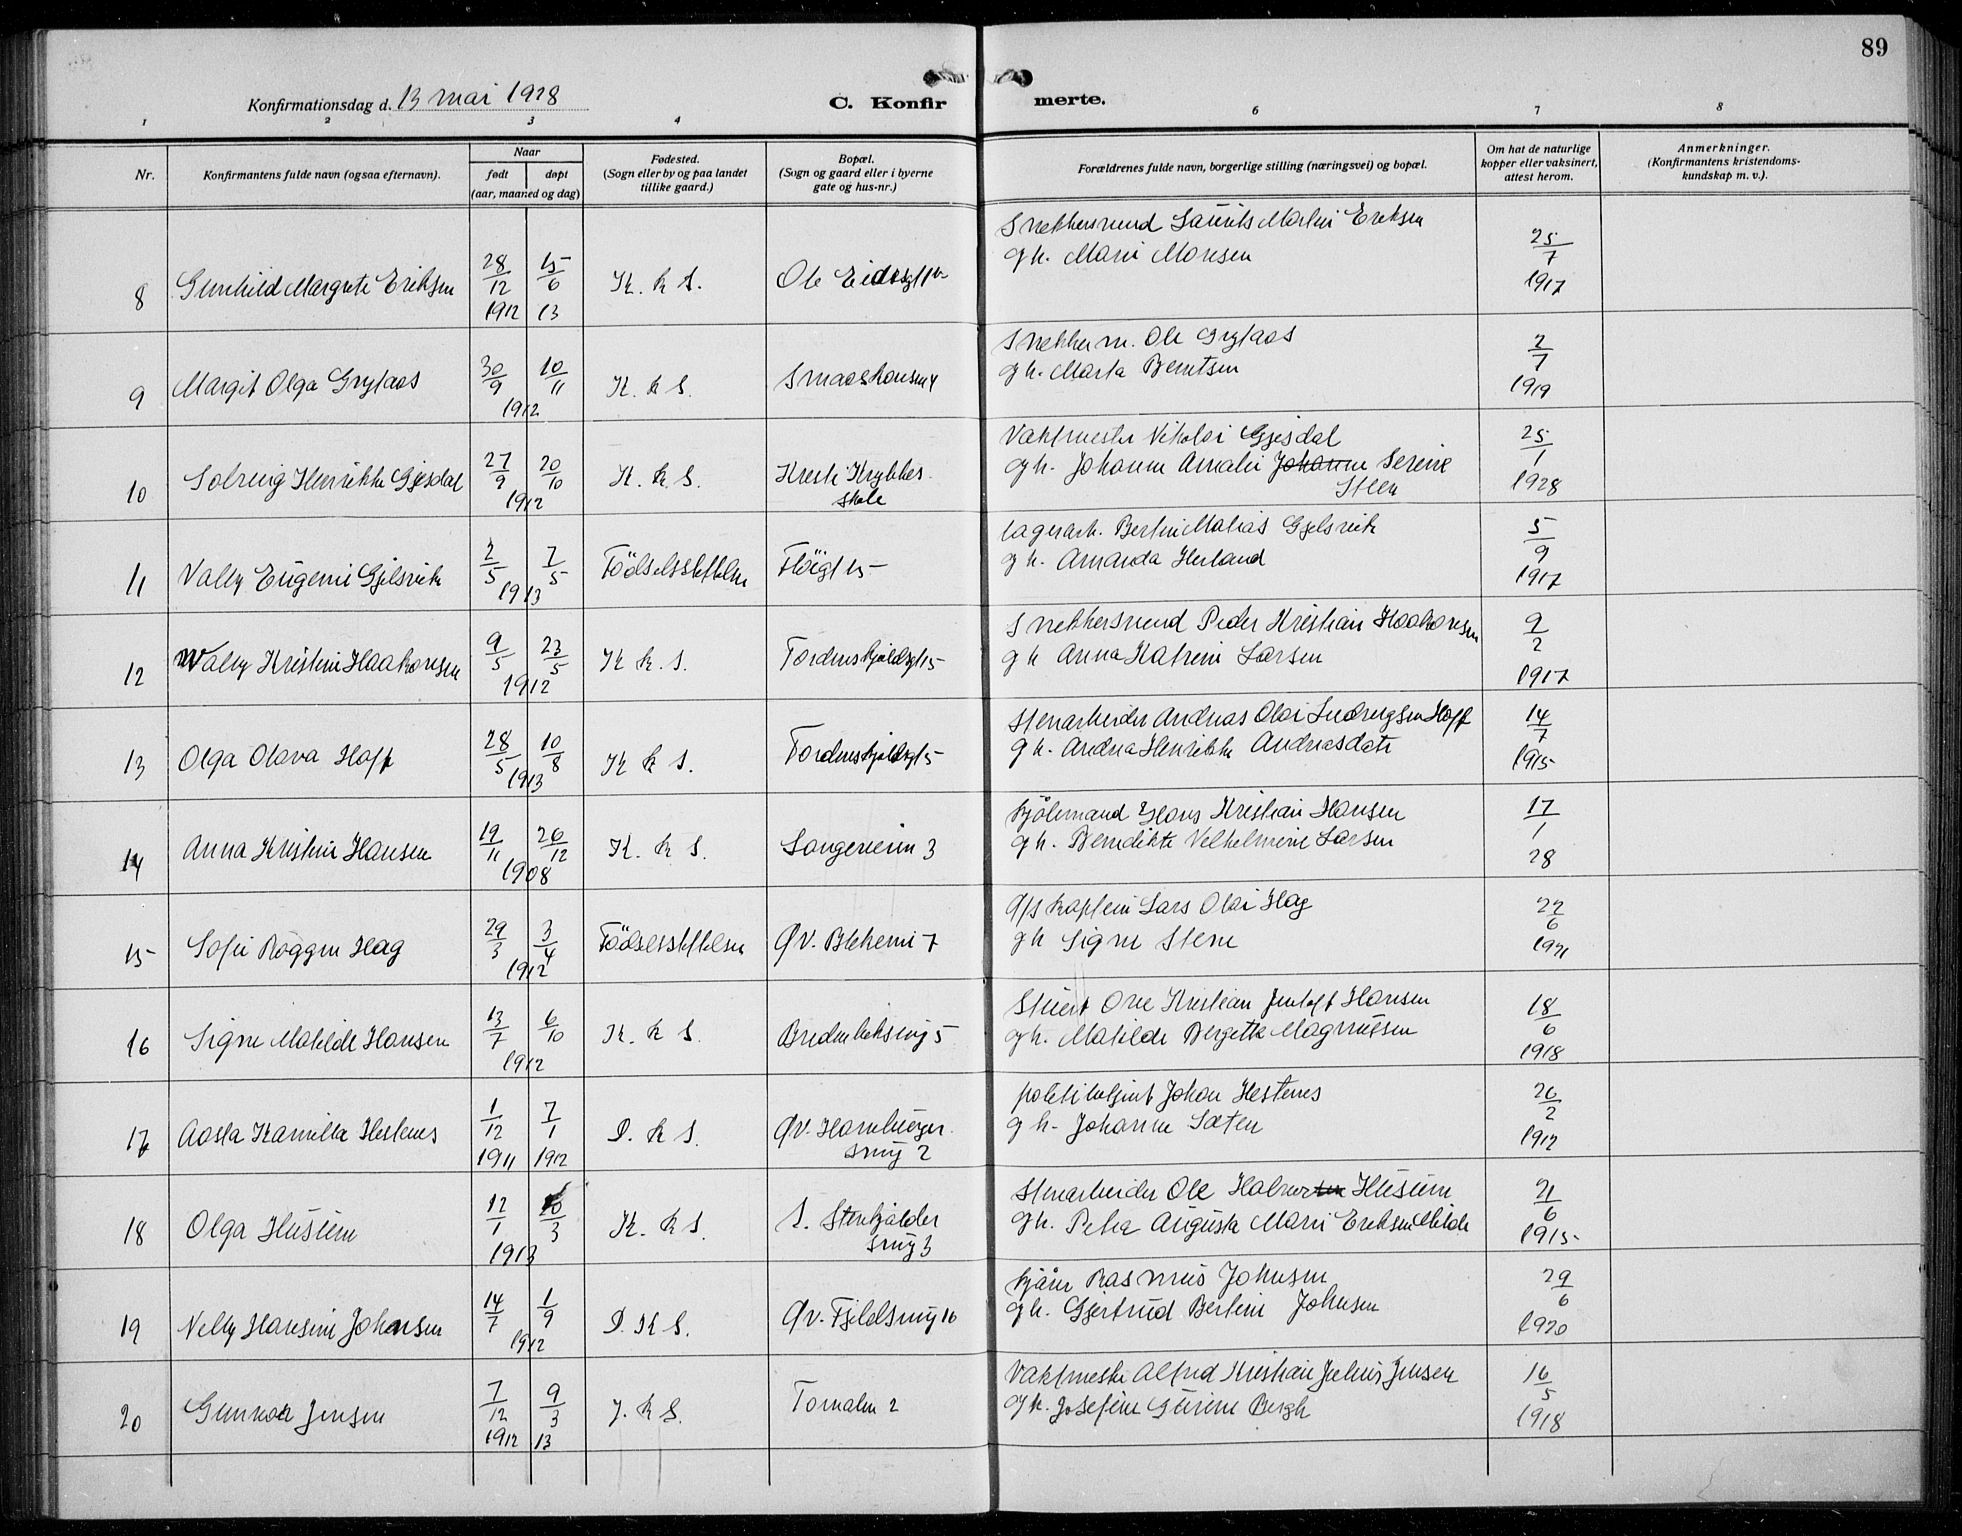 89
Konfirmationsdag d. 13 mai 1928
C. Konfir merte.
1 2 3 4 6 7 8
Nr.
Konfirmantens fulde navn (ogsaa efternavn).
Naar
født døpt
(aar, maaned og dag)
Fødested.
(Sogn eller by og paa landet
tillike gaard.)
Bopæl.
(Sogn og gaard eller i byerne
gate og hus-nr.)
Forældrenes fulde navn, borgerlige stilling (næringsvei) og bopæl.
Om hat de naturlige
kopper eller vaksinert,
attest herom.
Anmerkninger.
(Konfirmantens kristendoms-
kundskap m. v.).
8 Gunhild Margrete Eriksen 28/12 1912 15/6 13 K. k S.
Snekkersvend Laurits Martin Eriksen
g h. Marie Monsen
25/7 1917
9 Margit Olga Grytaas 30/9 10/11 1912 K. k S. Smaaskansen 4
Snekker m. Ole Grytaas
g h. Marta Berntsen
2/7 1919
10 Solveig Henrikke Gjesdal 27/9 20/10 1912 K. k S. Krybbes.
skole
Vaktmester Nikolai Gjesdal
g h. Johanne Amalie Johanne Serine
Steen
25/1 1928
11 Vally Eugenie Gjelsvik 2/5 7/5 1913 Födselsstiftelsen Fløigt 15
lagerarb. Bertin Matias Gjelsvik
g h. Amanda Herland
5/9 1917
12 Wally Kristine Haakonsen 9/5 23/5 1912 K k. S. Tordenskjoldsgt 15
Snekkersvend Peder Kristian Haakonsen
g h Anna Katrine Larsen
9/2 1917
13 Olga Olava Hoff 28/5 10/8 1913 K k S. Tordenskjoldsgt 5
Stenarbeider Andreas Olai Ludvigsen Hoff
g h. Andrea Henrikke Andreasdatter
14/7 1915
14 Anna Kristine Hansen 19/11 26/12 1908 K. k S. 3
Hans Kristian Hansen
g h. Benedikte Vilhelmine Larsen
17/1 28
15 Sofie Hag 29/3 3/4 1912 Födselsstiftelsen Øv. Blekevei 7
Kaptein Lars Olai Hag
g h Signe Stene
22/6 1921
16 Signe Matilde Hansen 13/7 6/10 1912 K. k S. 5
Stuert Ove Kristian Jentoft Hansen
g h. Matilde Bergette Magnussen
18/6 1918
17 Aasta Kamilla Hestenes 1/12 1911 7/1 1912 D. k S. Øv. Hamburger.
smug 2
politibetjent Johan Hestenes
g h. Johanne Sæten
26/2 1912
18 Olga Husum 12/1 3 1913 K. k S. S. Stenkjelder
smug 3
Stenarbeider Ole Husum
g h. Petra Augusta Marie Eriksen Milde
21/6 1915
19 Nelly Hansine Johnsen 14/7 1/9 1912 D. K S. Øv. Fjeldsmug 16
Rasmus Johnsen
g h. Gjertrud Bertine Johnsen
29/6 1920
20 Gunvor Jensen 7/12 1912 9/3 13 J. k S. 2
Vaktmester Alfred Kristian Julius Jensen
g h. Josefine Gurine Bergh
16/5 1918